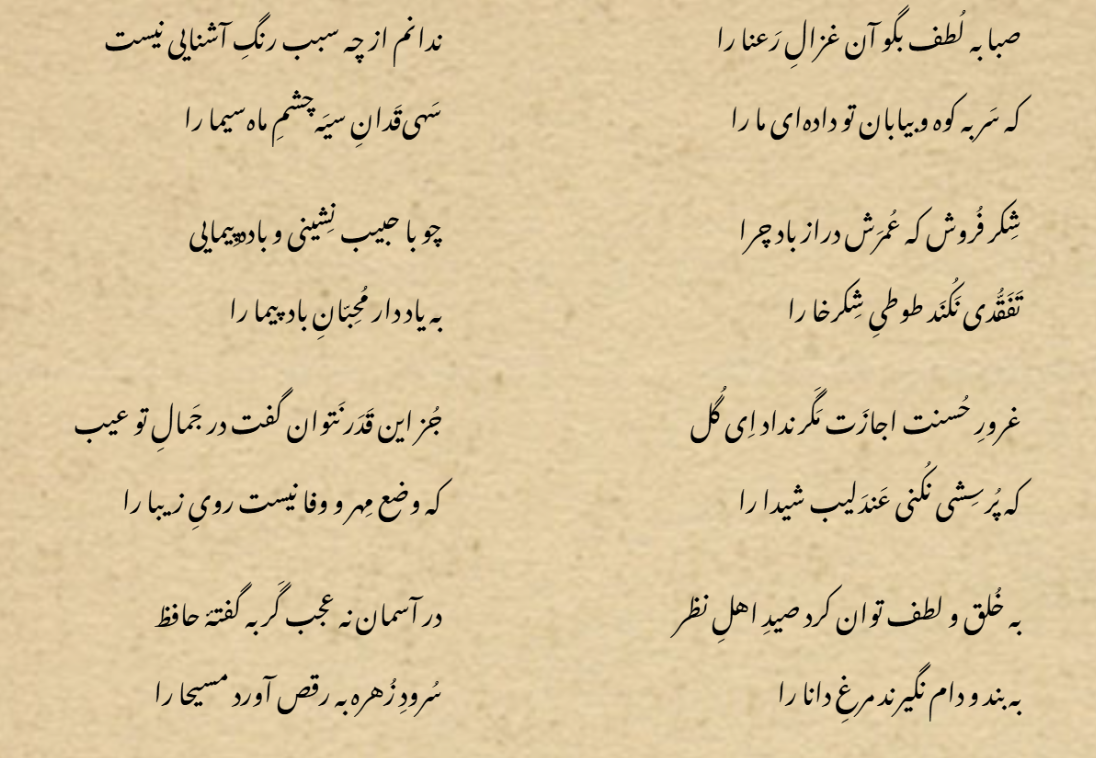 صبا به لُطف بگو آن غزالِ رَعنا را
که سَر به کوه و بیابان تو داده‌ای ما را
شِکر فُروش که عُمرَش دراز باد چرا
تَفَقُّدی نَکُنَد طوطیِ شِکرخا را
غرورِ حُسنت اجازَت مَگر نداد اِی گُل
که پُرسِشی نَکُنی عَندَلیب شیدا را
به خُلق و لطف توان کرد صیدِ اهلِ نظر
به بند و دام نگیرند مرغِ دانا را
ندانم از چه سبب رنگِ آشنایی نیست
سَهی قَدانِ سیَه چشمِ ماه سیما را
چو با حبیب نِشینی و باده پیمایی
به یاد دار مُحِبّانِ بادپیما را
جُز این قَدَر نَتوان گفت در جَمالِ تو عیب
که وضع مِهر و وفا نیست رویِ زیبا را
در آسمان نه عجب گَر به گفتهٔ حافظ
سُرودِ زُهره به رقص آورد مسیحا را